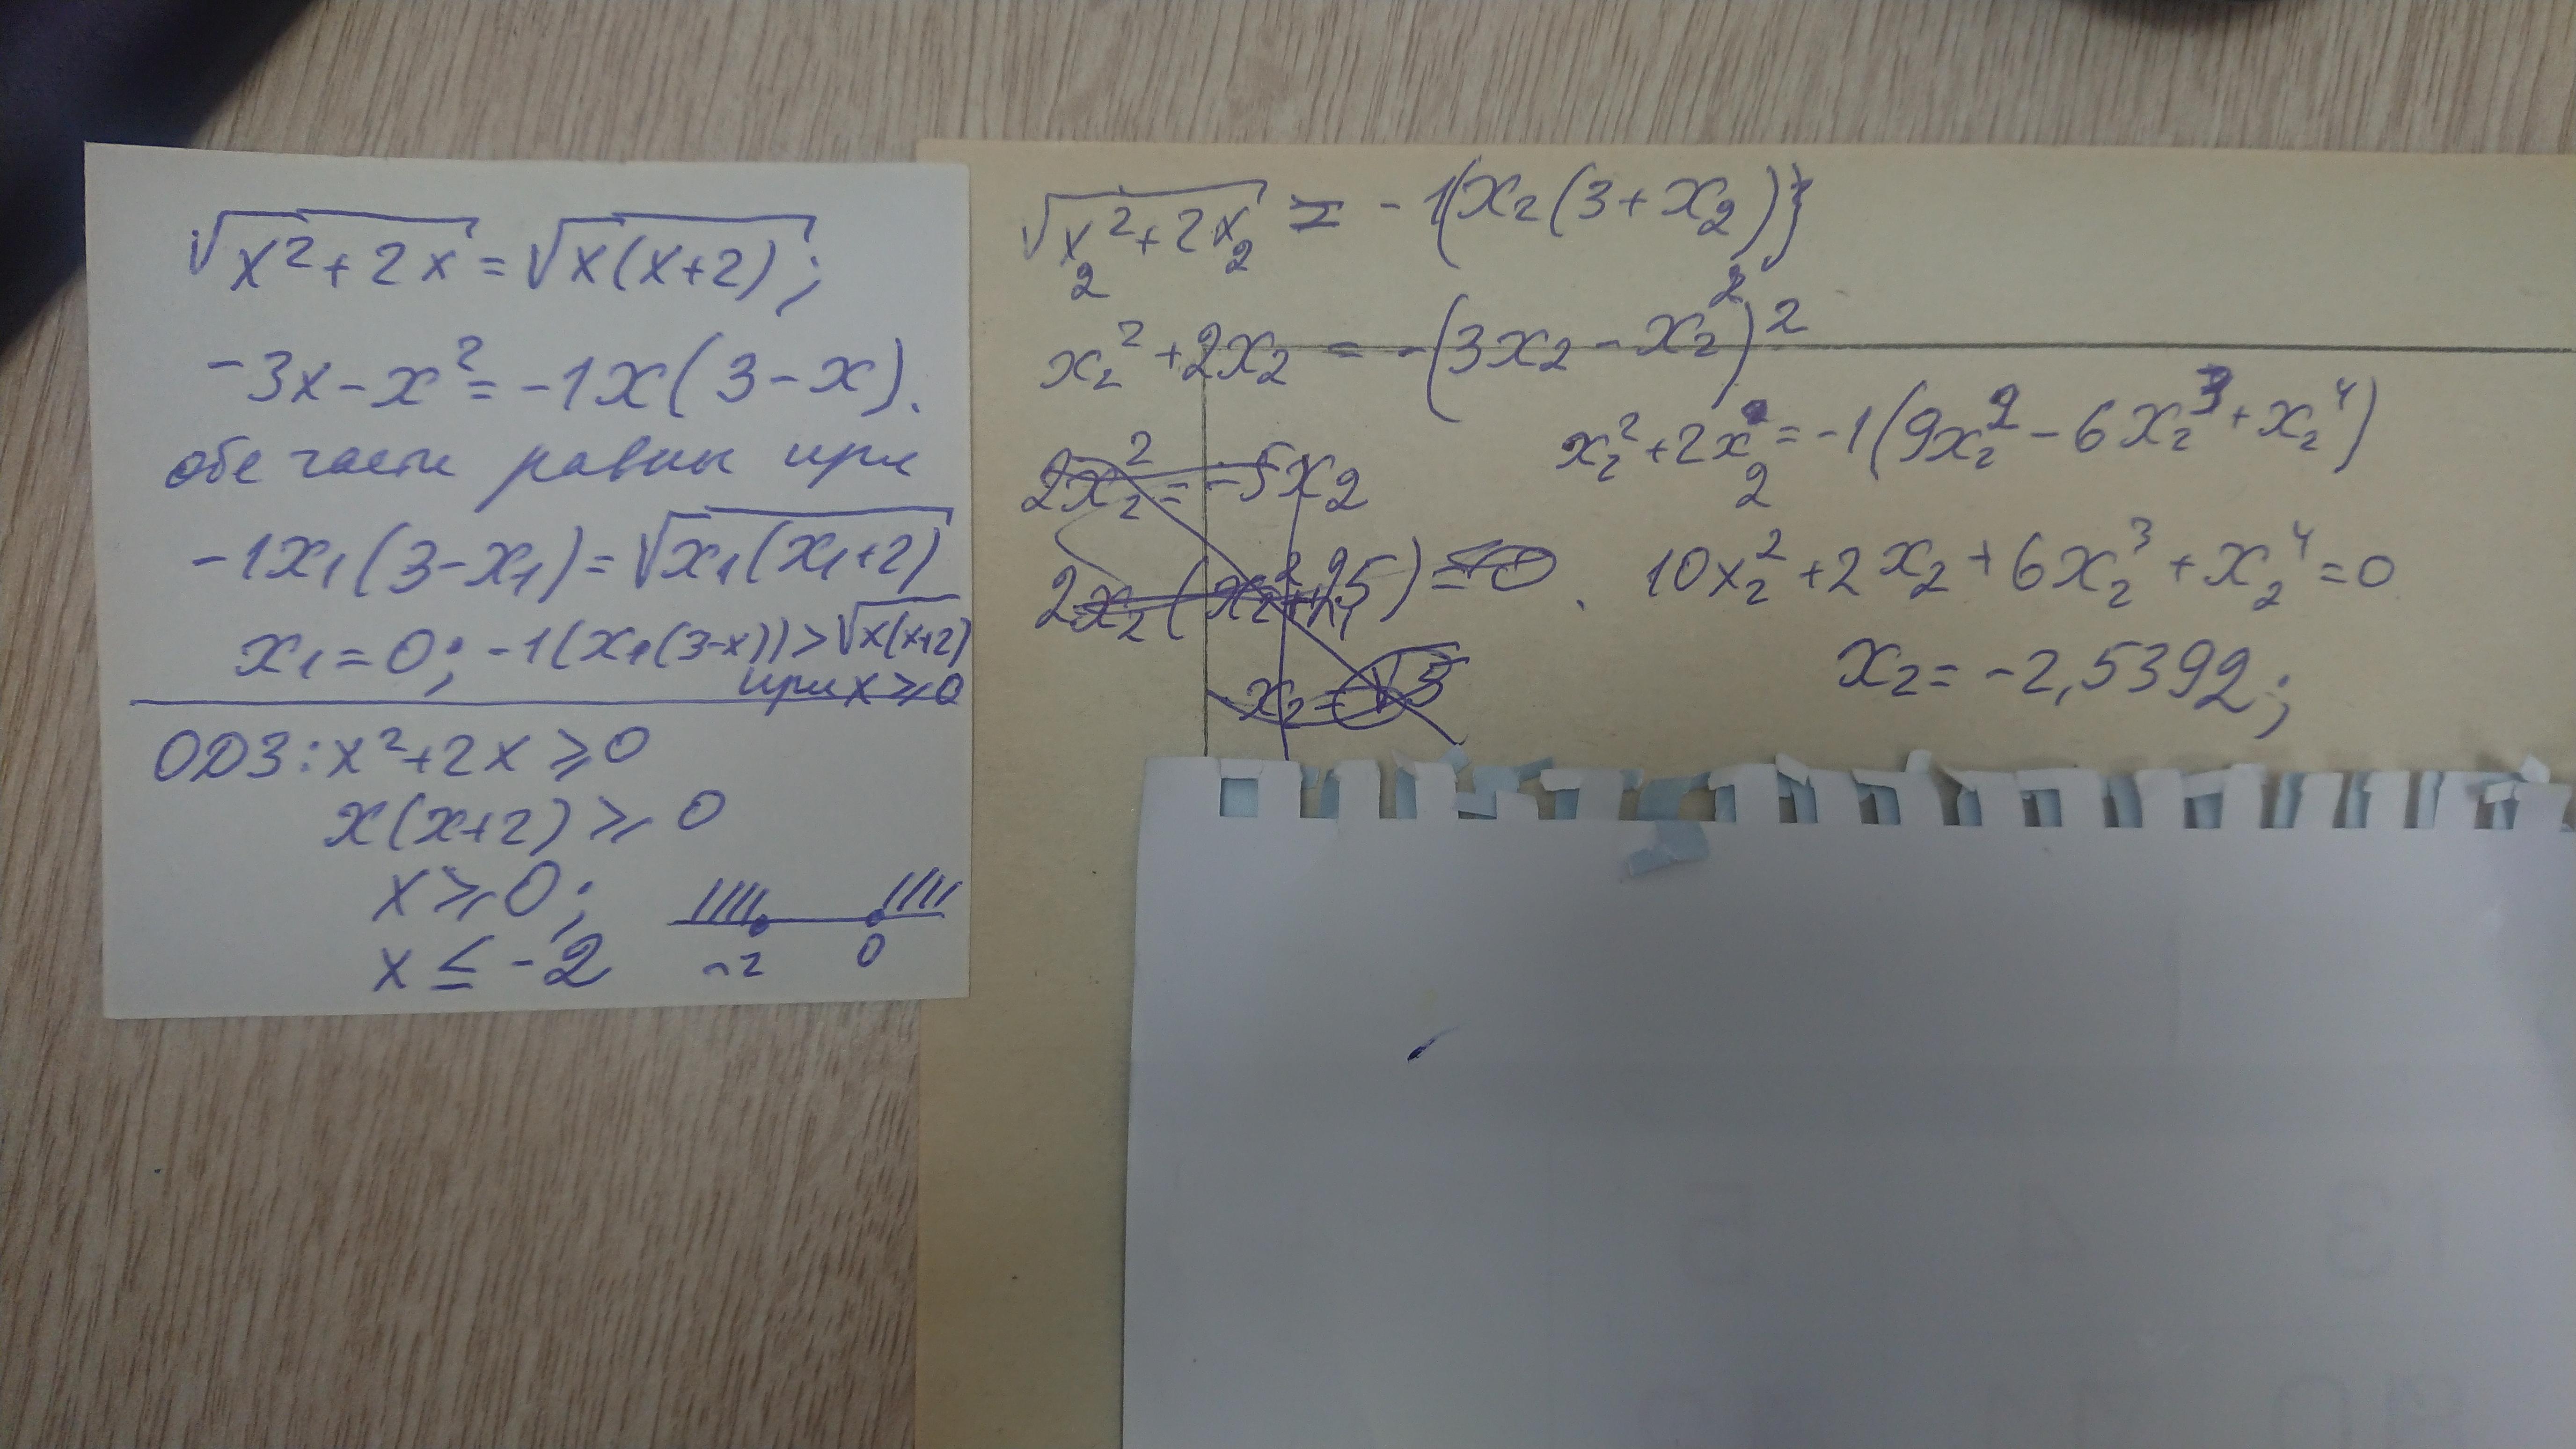 √x²+2x = √x(x+2);
-3x-x² = -1x(3-x).
обе части равны при
-1x₁(3-x₁)=√x₁(x₁+2)
x₁=0; -1(x₁(3-x))>√x(x+2)
при x⩾0
ОДЗ: x²+2x⩾0
x(x+2)⩾0
x⩾0;
x≤-2
-2 0
√x₂²+2x₂ = -1(x₂(3+x₂)}
x₂²+2x₂ = -(3x₂-x₂²)²
x₂²+2x₂=-1(9x₂²-6x₂³+x₂⁴)
2x₂²=-5x₂
10x₂²+2x₂+6x₂³+x₂⁴=0
x₂=-2,5392;